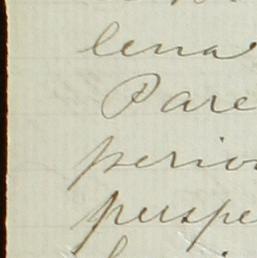 lena
Pare
perio
perspe